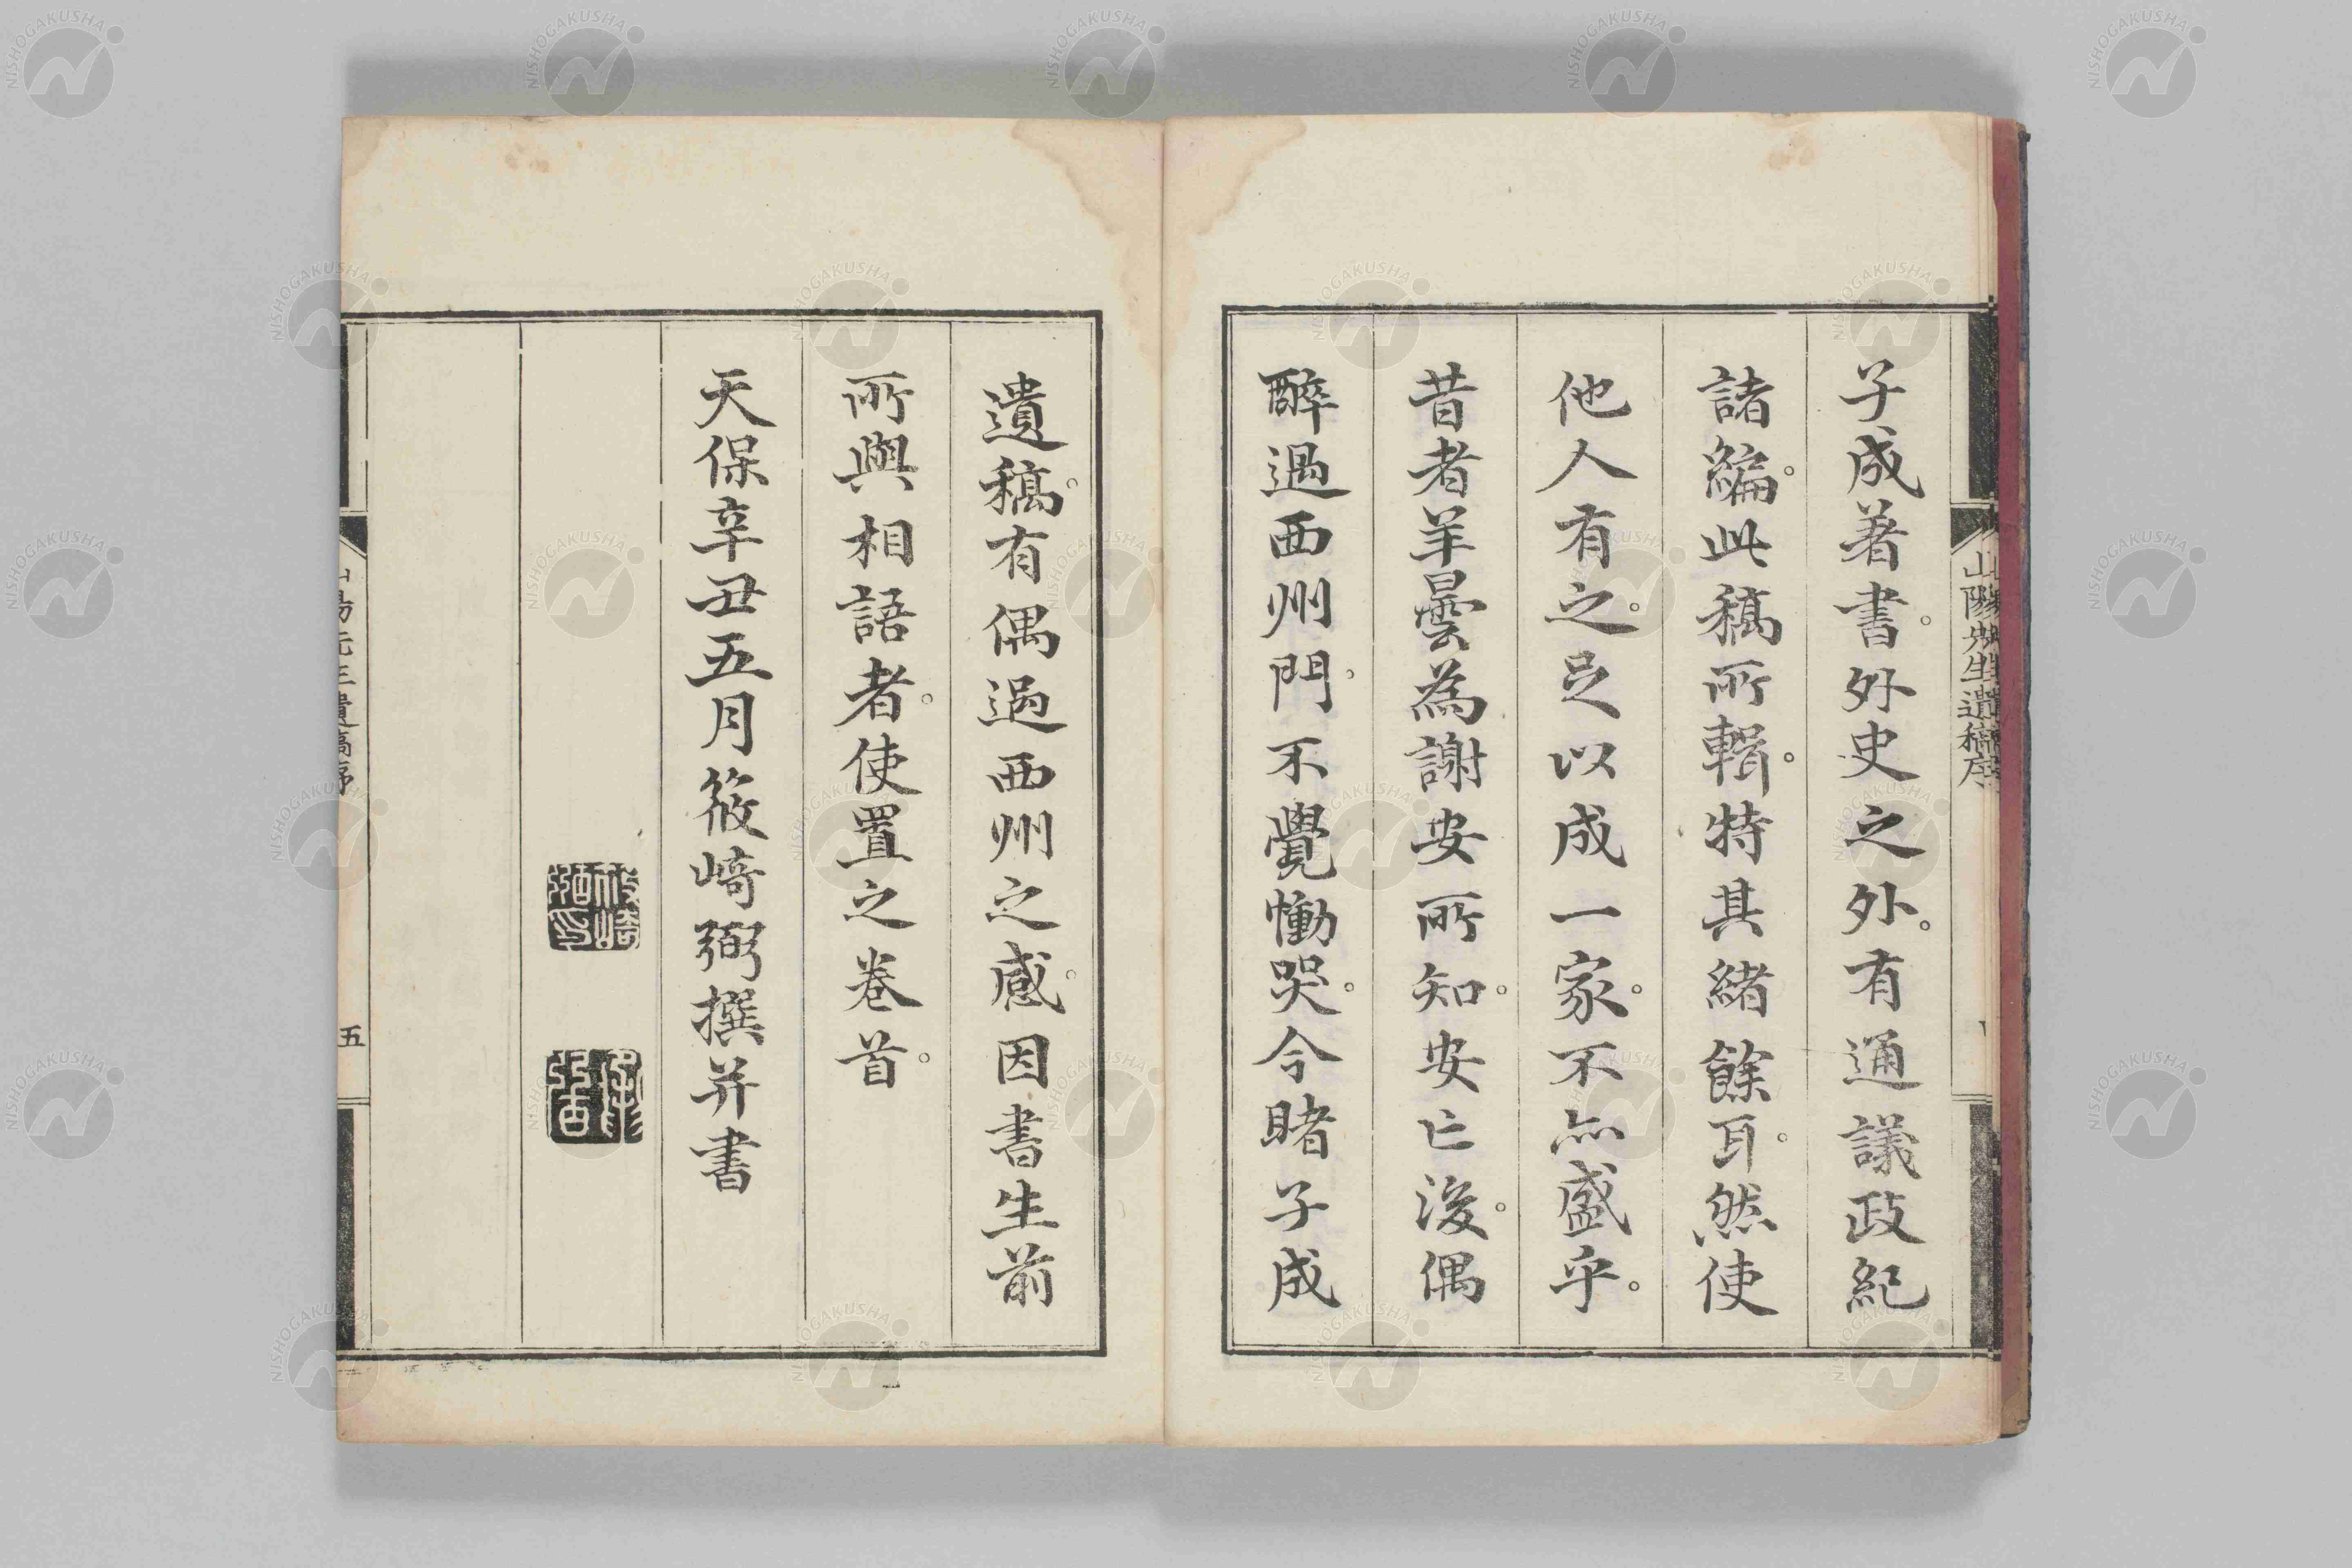 山陽先生遺稿序
子成著書。外史之外。有通議政紀
諸編。此稿所輯。特其緒餘耳。然使
他人有之。足以成一家。不亦盛乎。
昔者羊曇為謝安所知。安亡後。偶
醉過西州門。不覺慟哭。今睹子成
遺稿。有偶過西州之感。因書生前
所與相語者。使置之卷首。
天保辛丑五月筱崎弼撰并書
五
NISHOGAKUSHA